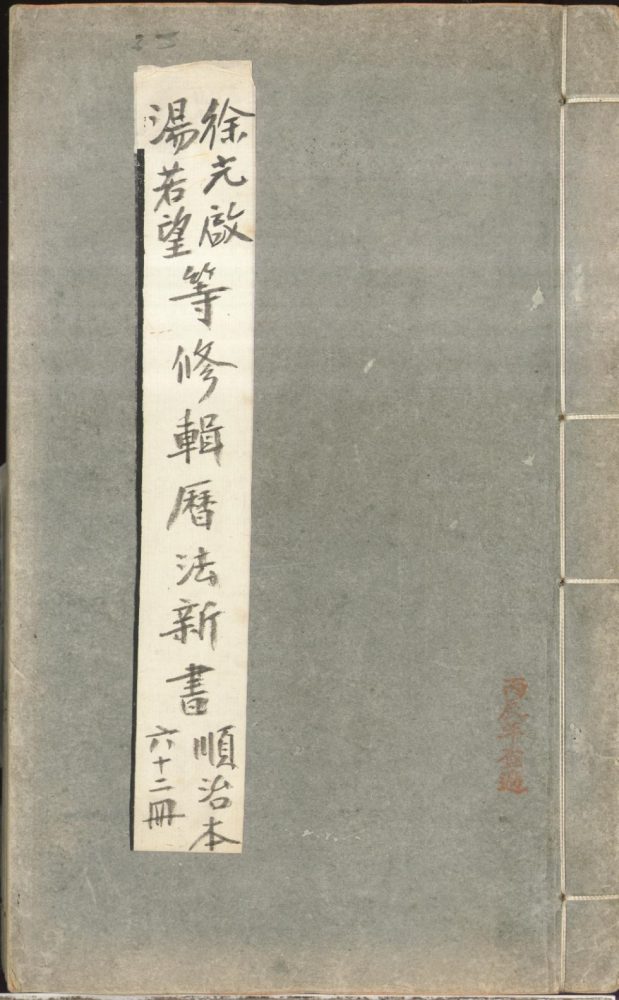 徐光啟
湯若望
等修輯曆法新書
順治本
六十二冊
丙辰年查過